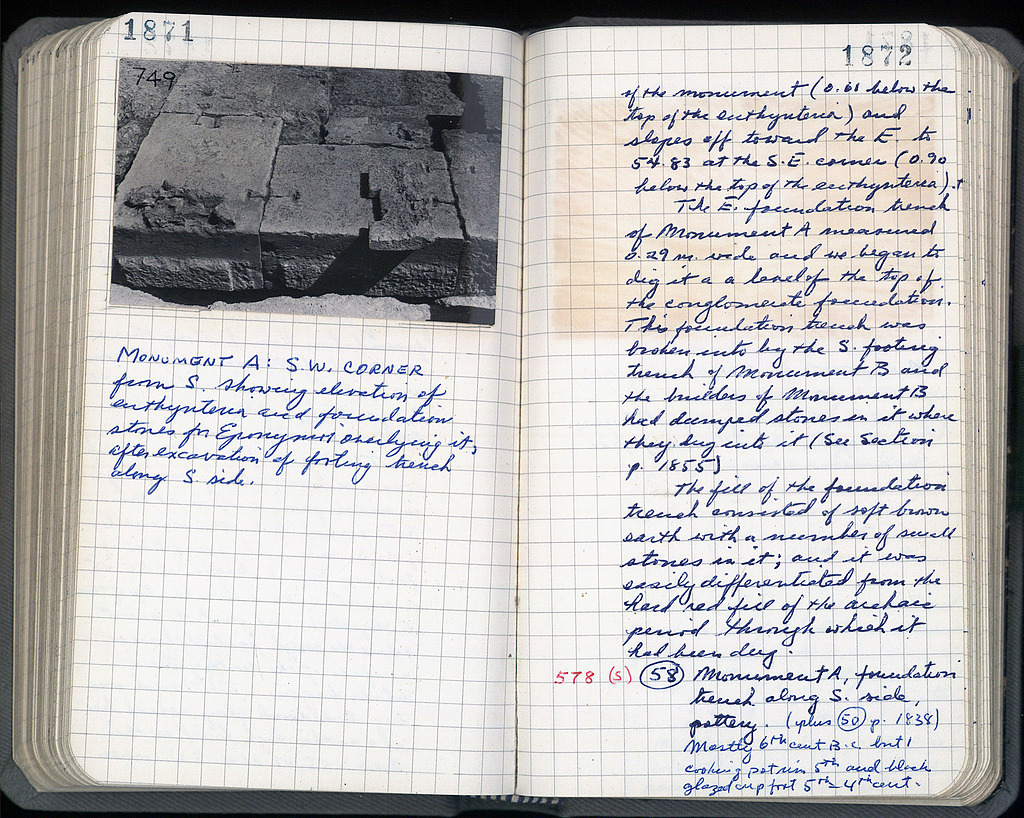 1871
749
MONUMENT A: S.W. CORNER
from S. showing elevation of
euthynteria and foundation
stones for Eponymoi overlying it;
after excavation of footing trench
along S. side.
1872
of the monument (0.61 below the
top of the euthynteria) and
slopes off toward the E to
54.83 at the S.E. corner (0.90
below the top of the euthynteria).
The E. foundation trench
of Monument A measured
0.29 m. wide and we began to
dig it a a level of the top of
the conglomerate foundation.
This foundation trench was
broken into by the S. footing
trench of Monument B and
the builders of Monument B
had dumped stones in it where
they dug into it (See Section
p. 1855)
The fill of the foundation
trench consisted of soft brown
earth with a number of small
stones in it; and it was
easily differentiated from the
hard red fill of the archaic
period through which it
had been dug.
578 (S) 58 Monument A, foundation
trench along S. side,
pottery. (plus 50 p. 1838)
Mostly 6th cent B.C. but 1
cooking pot rim 5th and black
glazed cup foot 5th-4th cent.